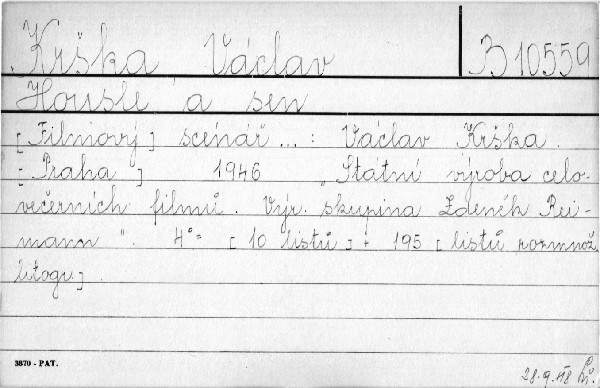 Krška Václav B 10559
Housle a sen
[Filmový] scénář... : Václav Krška.
[Praha] 1946 „Státní výroba celo-
večerních filmů. Výr. skupina Zdeněk Rei-
mann“. 4°= [10 listů] + 195 [listů rozmnož.
litogr.].
3870 - PAT.
28.9.48